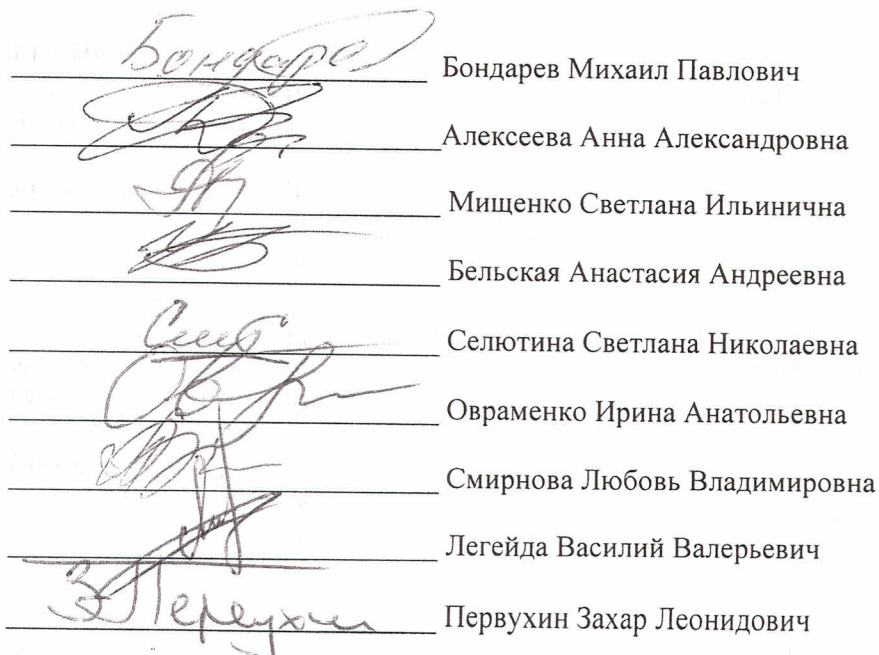 Бондарев Бондарев Михаил Павлович
Алексеева Анна Александровна
Мищенко Светлана Ильинична
Бельская Анастасия Андреевна
Селютина Светлана Николаевна
Овраменко Ирина Анатольевна
Смирнова Любовь Владимировна
Легейда Василий Валерьевич
Первухин Захар Леонидович